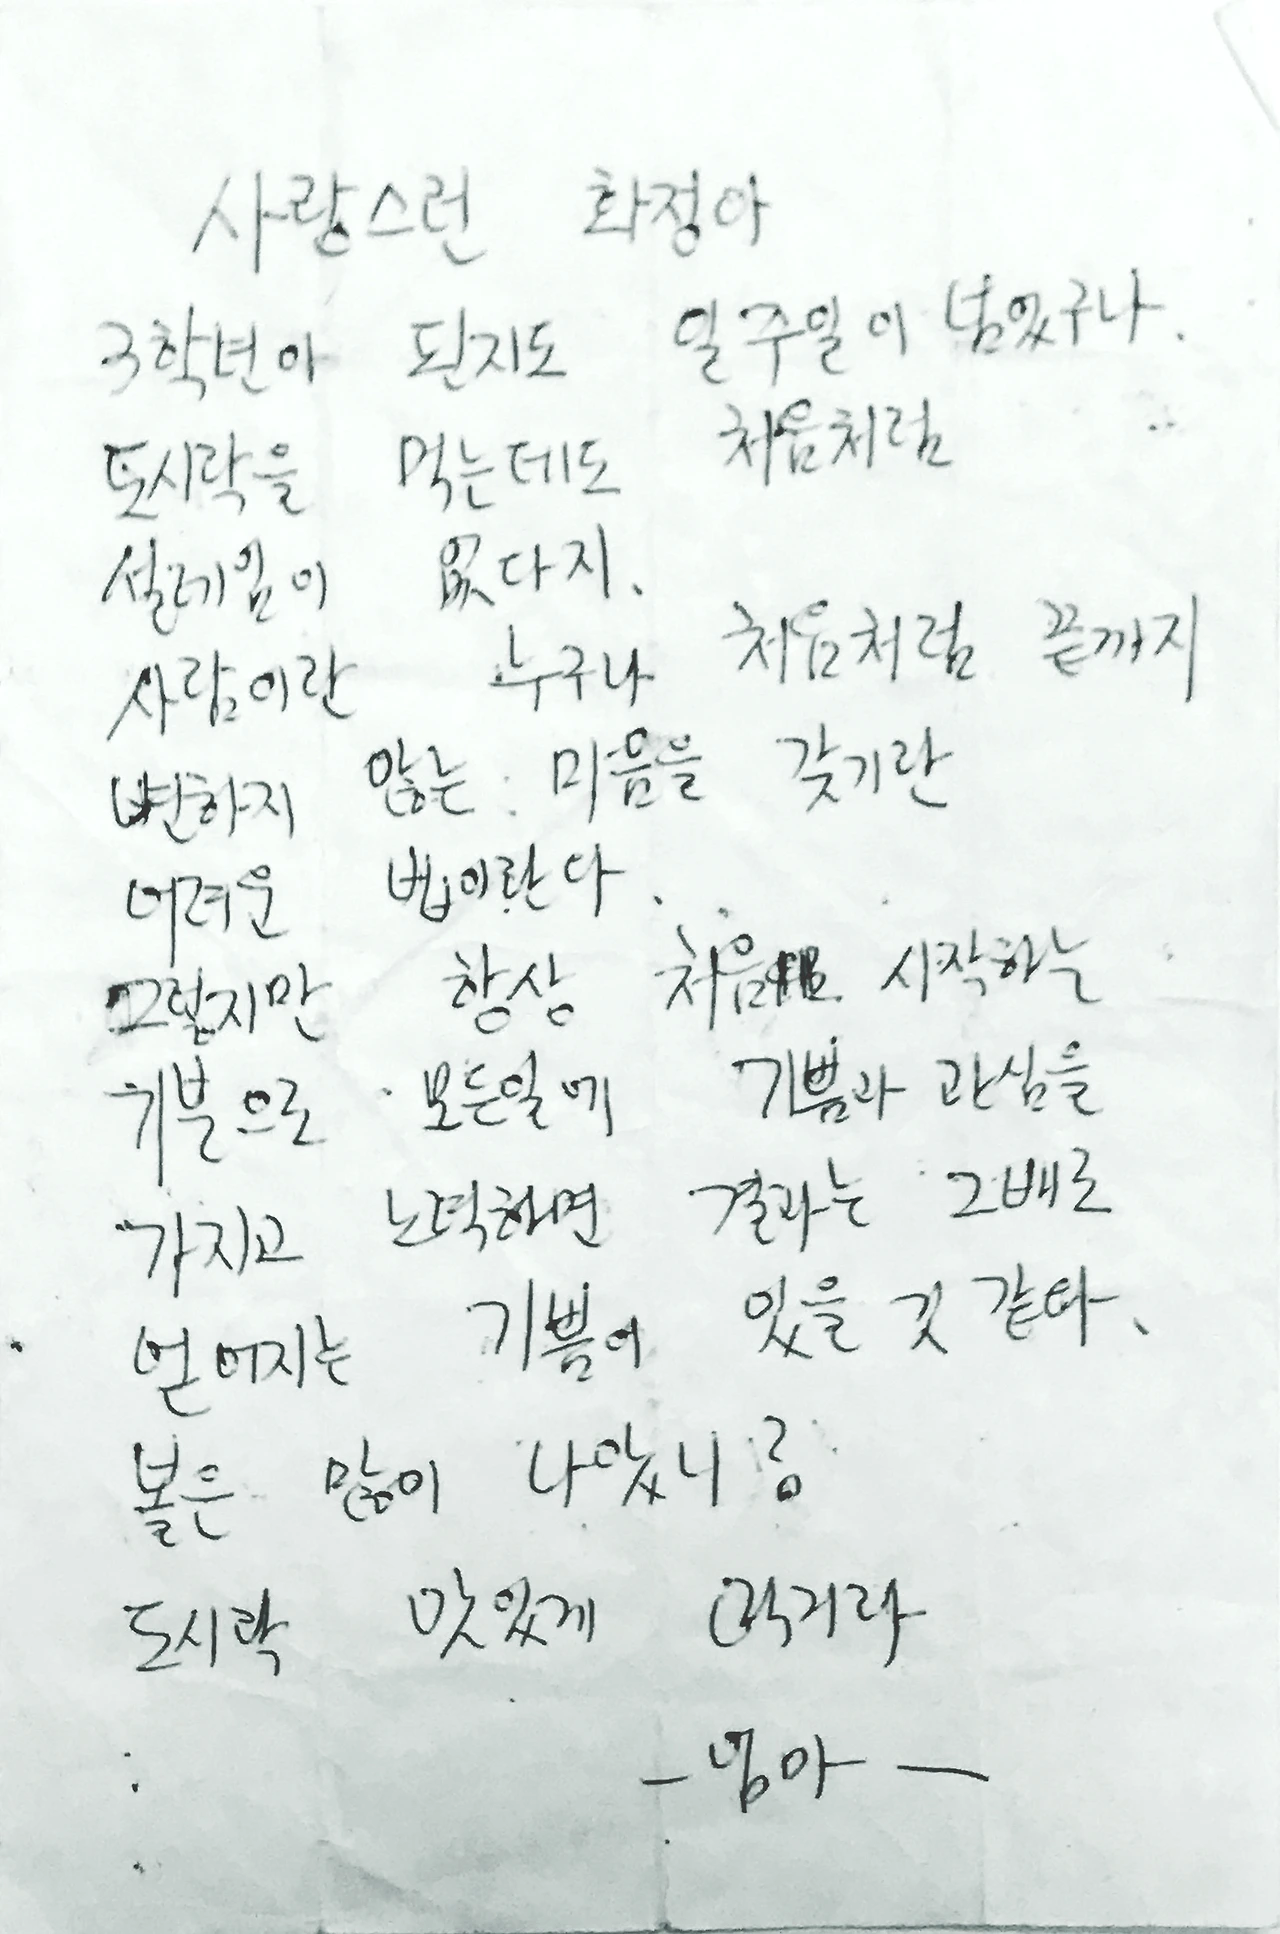 사랑스런 화정아
3학년이 된지도 일주일이 넘었구나.
도시락을 먹는데도 처음처럼
설레임이 없다지.
사람이란 누구나 처음처럼 끝까지
변하지 않는 마음을 갖기란
어려운 법이란다.
그렇지만 항상 처음 시작하는
기분으로 모든일에 기쁨과 관심을
가지고 노력하면 결과는 그배로
얻어지는 기쁨이 있을 것 같다.
볼은 많이 나았니?
도시락 맛있게 먹거라
- 엄마 -